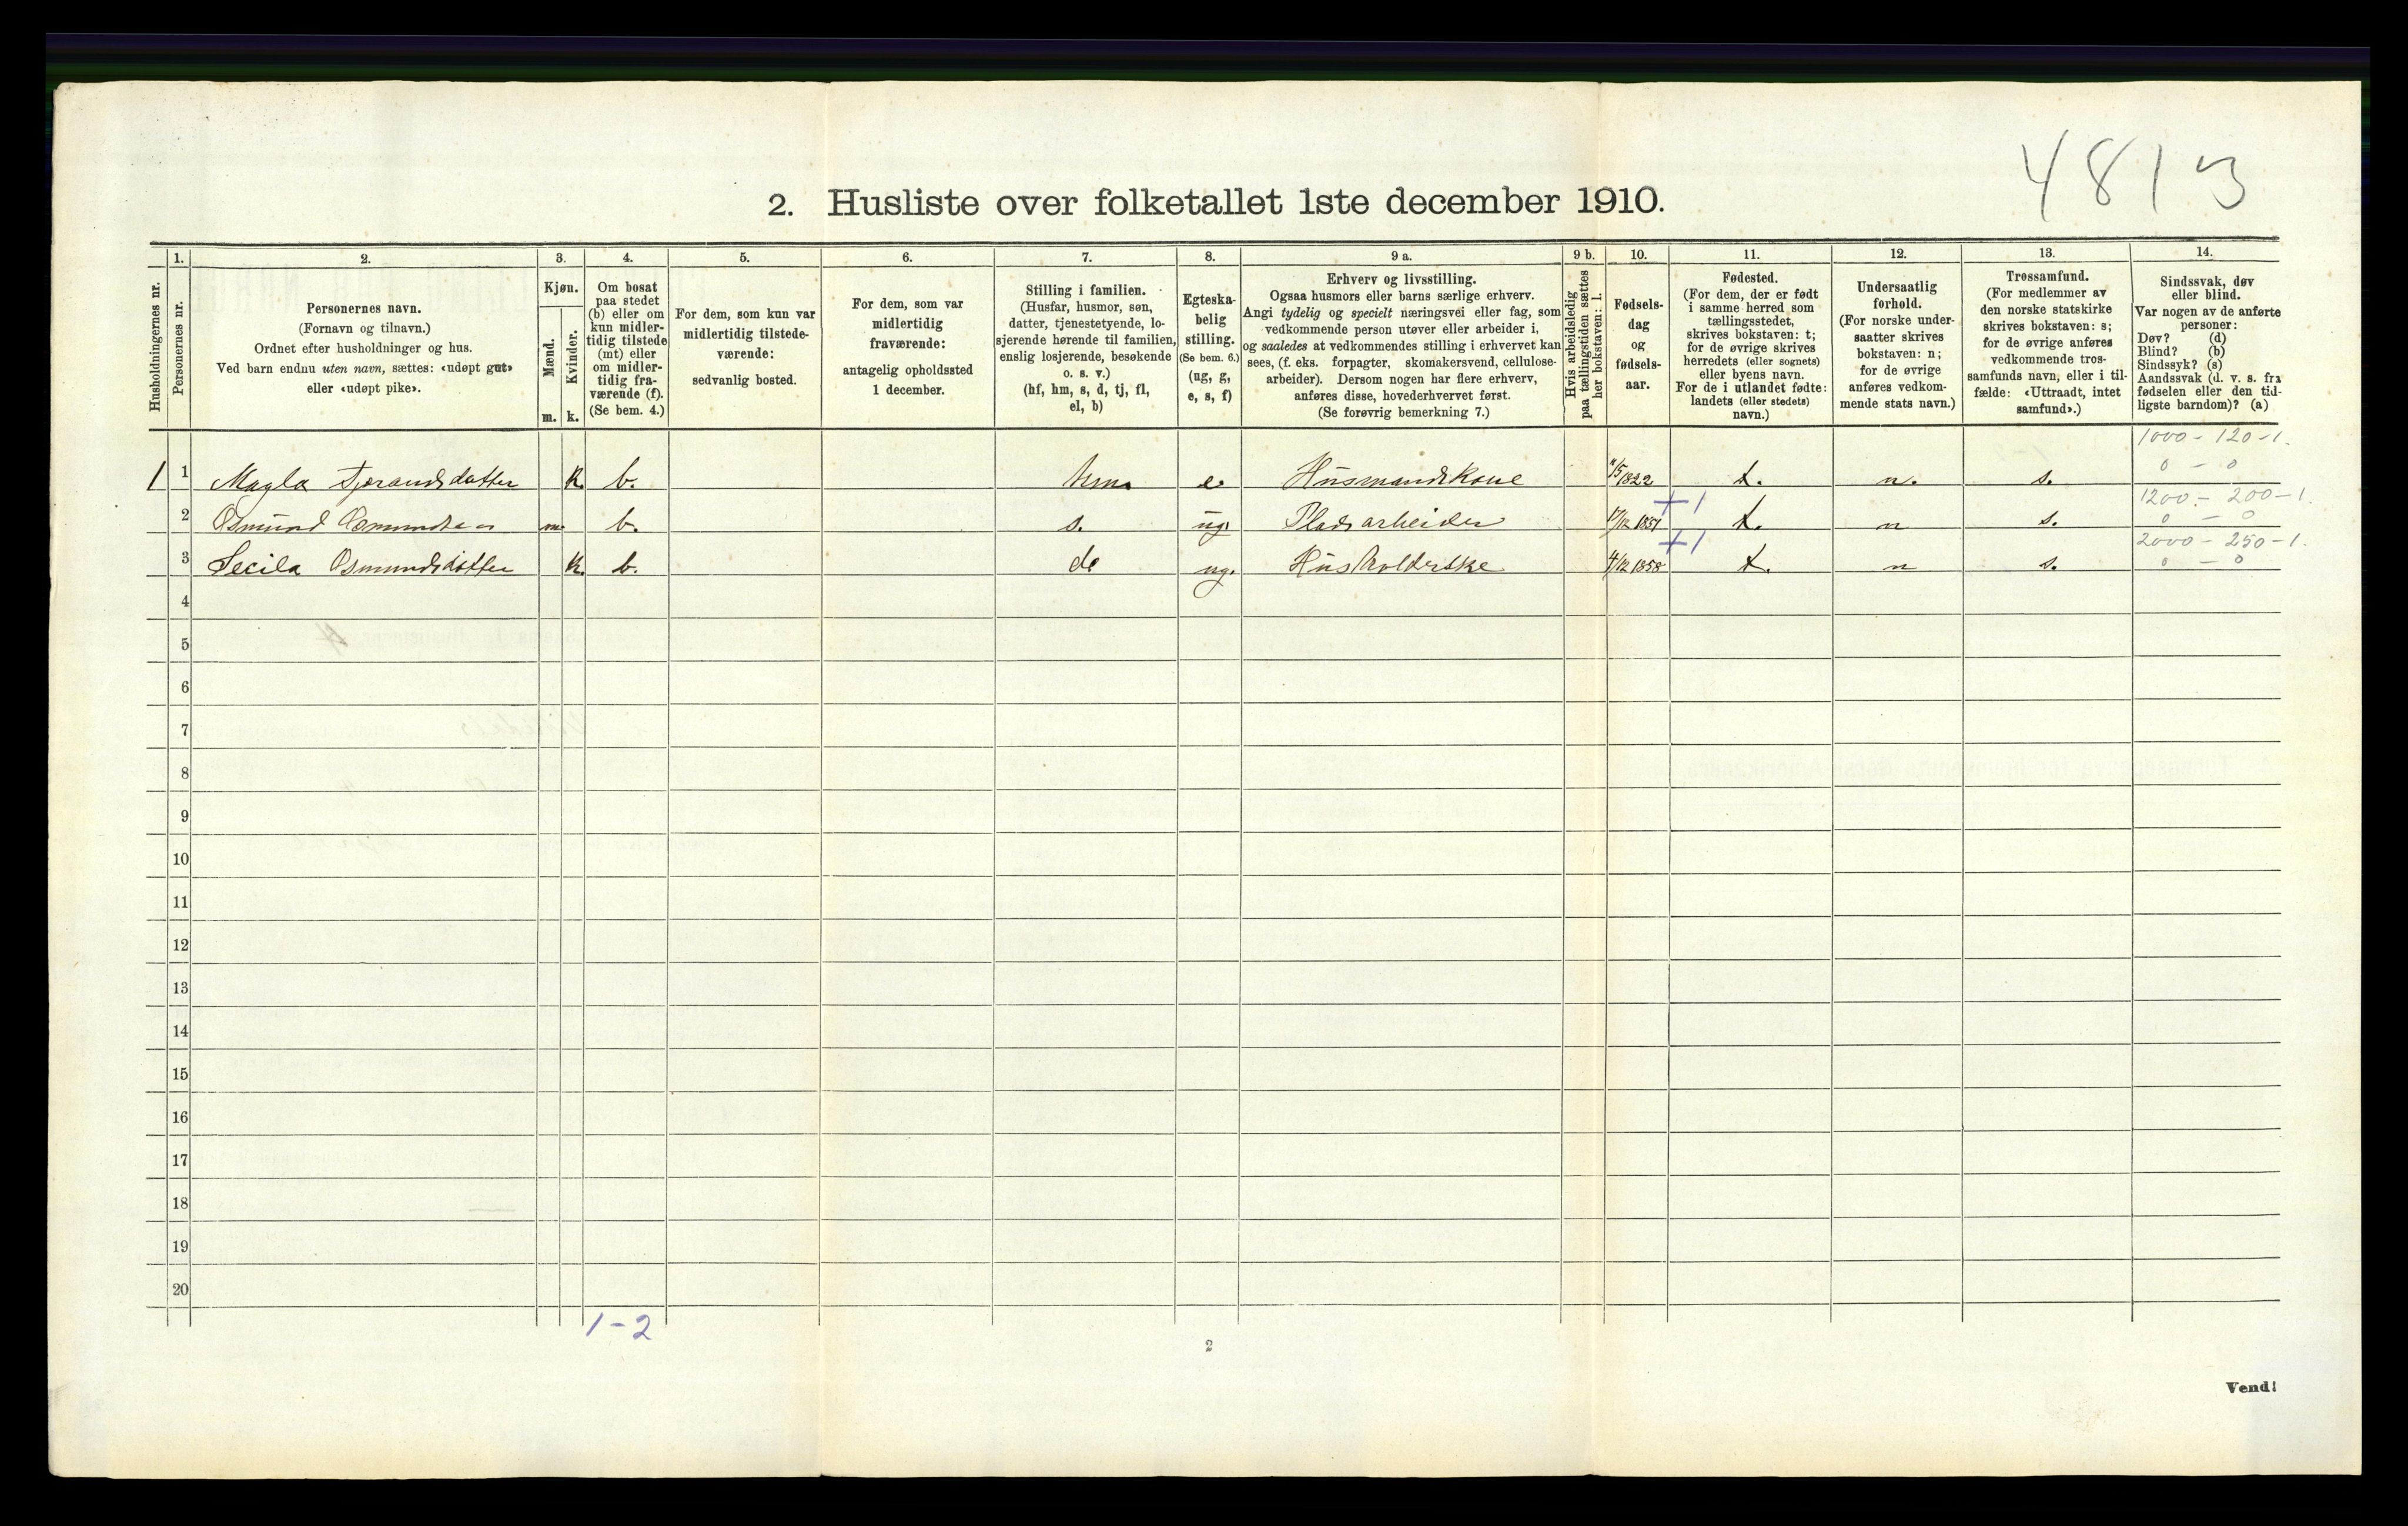 4813
2. Husliste over folketallet 1ste december 1910.
Husholdningernes nr.
1.
Personernes nr.
2.
Personernes navn.
(Fornavn og tilnavn.)
Ordnet efter husholdninger og hus.
Ved barn endnu uten navn, sættes: «udøpt gut»
eller «udøpt pike».
3.
Kjøn.
Mænd.
m.
Kvinder.
k.
4.
Om bosat
paa stedet
(b) eller om
kun midler-
tidig tilstede
(mt) eller
om midler-
tidig fra-
værende (f).
(Se bem. 4.)
5.
For dem, som kun var
midlertidig tilstede-
værende:
sedvanlig bosted.
6.
For dem, som var
midlertidig
fraværende:
antagelig opholdssted
1 december.
7.
Stilling i familien.
(Husfar, husmor, søn,
datter, tjenestetyende, lo-
sjerende hørende til familien,
enslig losjerende, besøkende
o. s. v.)
(hf, hm, s, d, tj, fl,
el, b)
8.
Egteska-
belig
stilling.
(Se bem. 6.)
(ug, g,
e, s, f)
9 a.
Erhverv og livsstilling.
Ogsaa husmors eller barns særlige erhverv.
Angi tydelig og specielt næringsvei eller fag, som
vedkommende person utøver eller arbeider i,
og saaledes at vedkommendes stilling i erhvervet kan
sees, (f. eks. forpagter, skomakersvend, cellulose-
arbeider). Dersom nogen har flere erhverv,
anføres disse, hovederhvervet først.
(Se forøvrig bemerkning 7.)
9 b.
Hvis arbeidsledig
paa tællingstiden sættes
her bokstaven: l.
10.
Fødsels-
dag
og
fødsels-
aar.
11.
Fødested.
(For dem, der er født
i samme herred som
tællingsstedet,
skrives bokstaven: t;
for de øvrige skrives
herredets (eller sognets)
eller byens navn.
For de i utlandet fødte:
landets (eller stedets)
navn.)
12.
Undersaatlig
forhold.
(For norske under-
saatter skrives
bokstaven: n;
for de øvrige
anføres vedkom-
mende stats navn.)
13.
Trossamfund.
(For medlemmer av
den norske statskirke
skrives bokstaven: s;
for de øvrige anføres
vedkommende tros-
samfunds navn, eller i til-
fælde: «Uttraadt, intet
samfund».)
14.
Sindssvak, døv
eller blind.
Var nogen av de anførte
personer:
Døv? (d)
Blind? (b)
Sindssyk? (s)
Aandssvak (d. v. s. fra
fødselen eller den tid-
ligste barndom)? (a)
1000 - 120 - 1.
0 - 0
1 1 Magla Tjerandsdatter k. b. hm. e. Husmandskone 1822 t. n. s.
1200 - 200 - 1.
0 - 0
+1
2 Osmund Osmundsen m. b. s. ug. Pladsarbeider 17/12 1851 t. n s.
2000 - 250 - 1.
0 - 0
+1
3 Secila Osmundsdatter k. b. d. ug. Husholderske 4/12 1858 t. n s.
4
5
6
7
8
9
10
11
12
13
14
15
16
17
18
19
20
1-2
2
Vend!